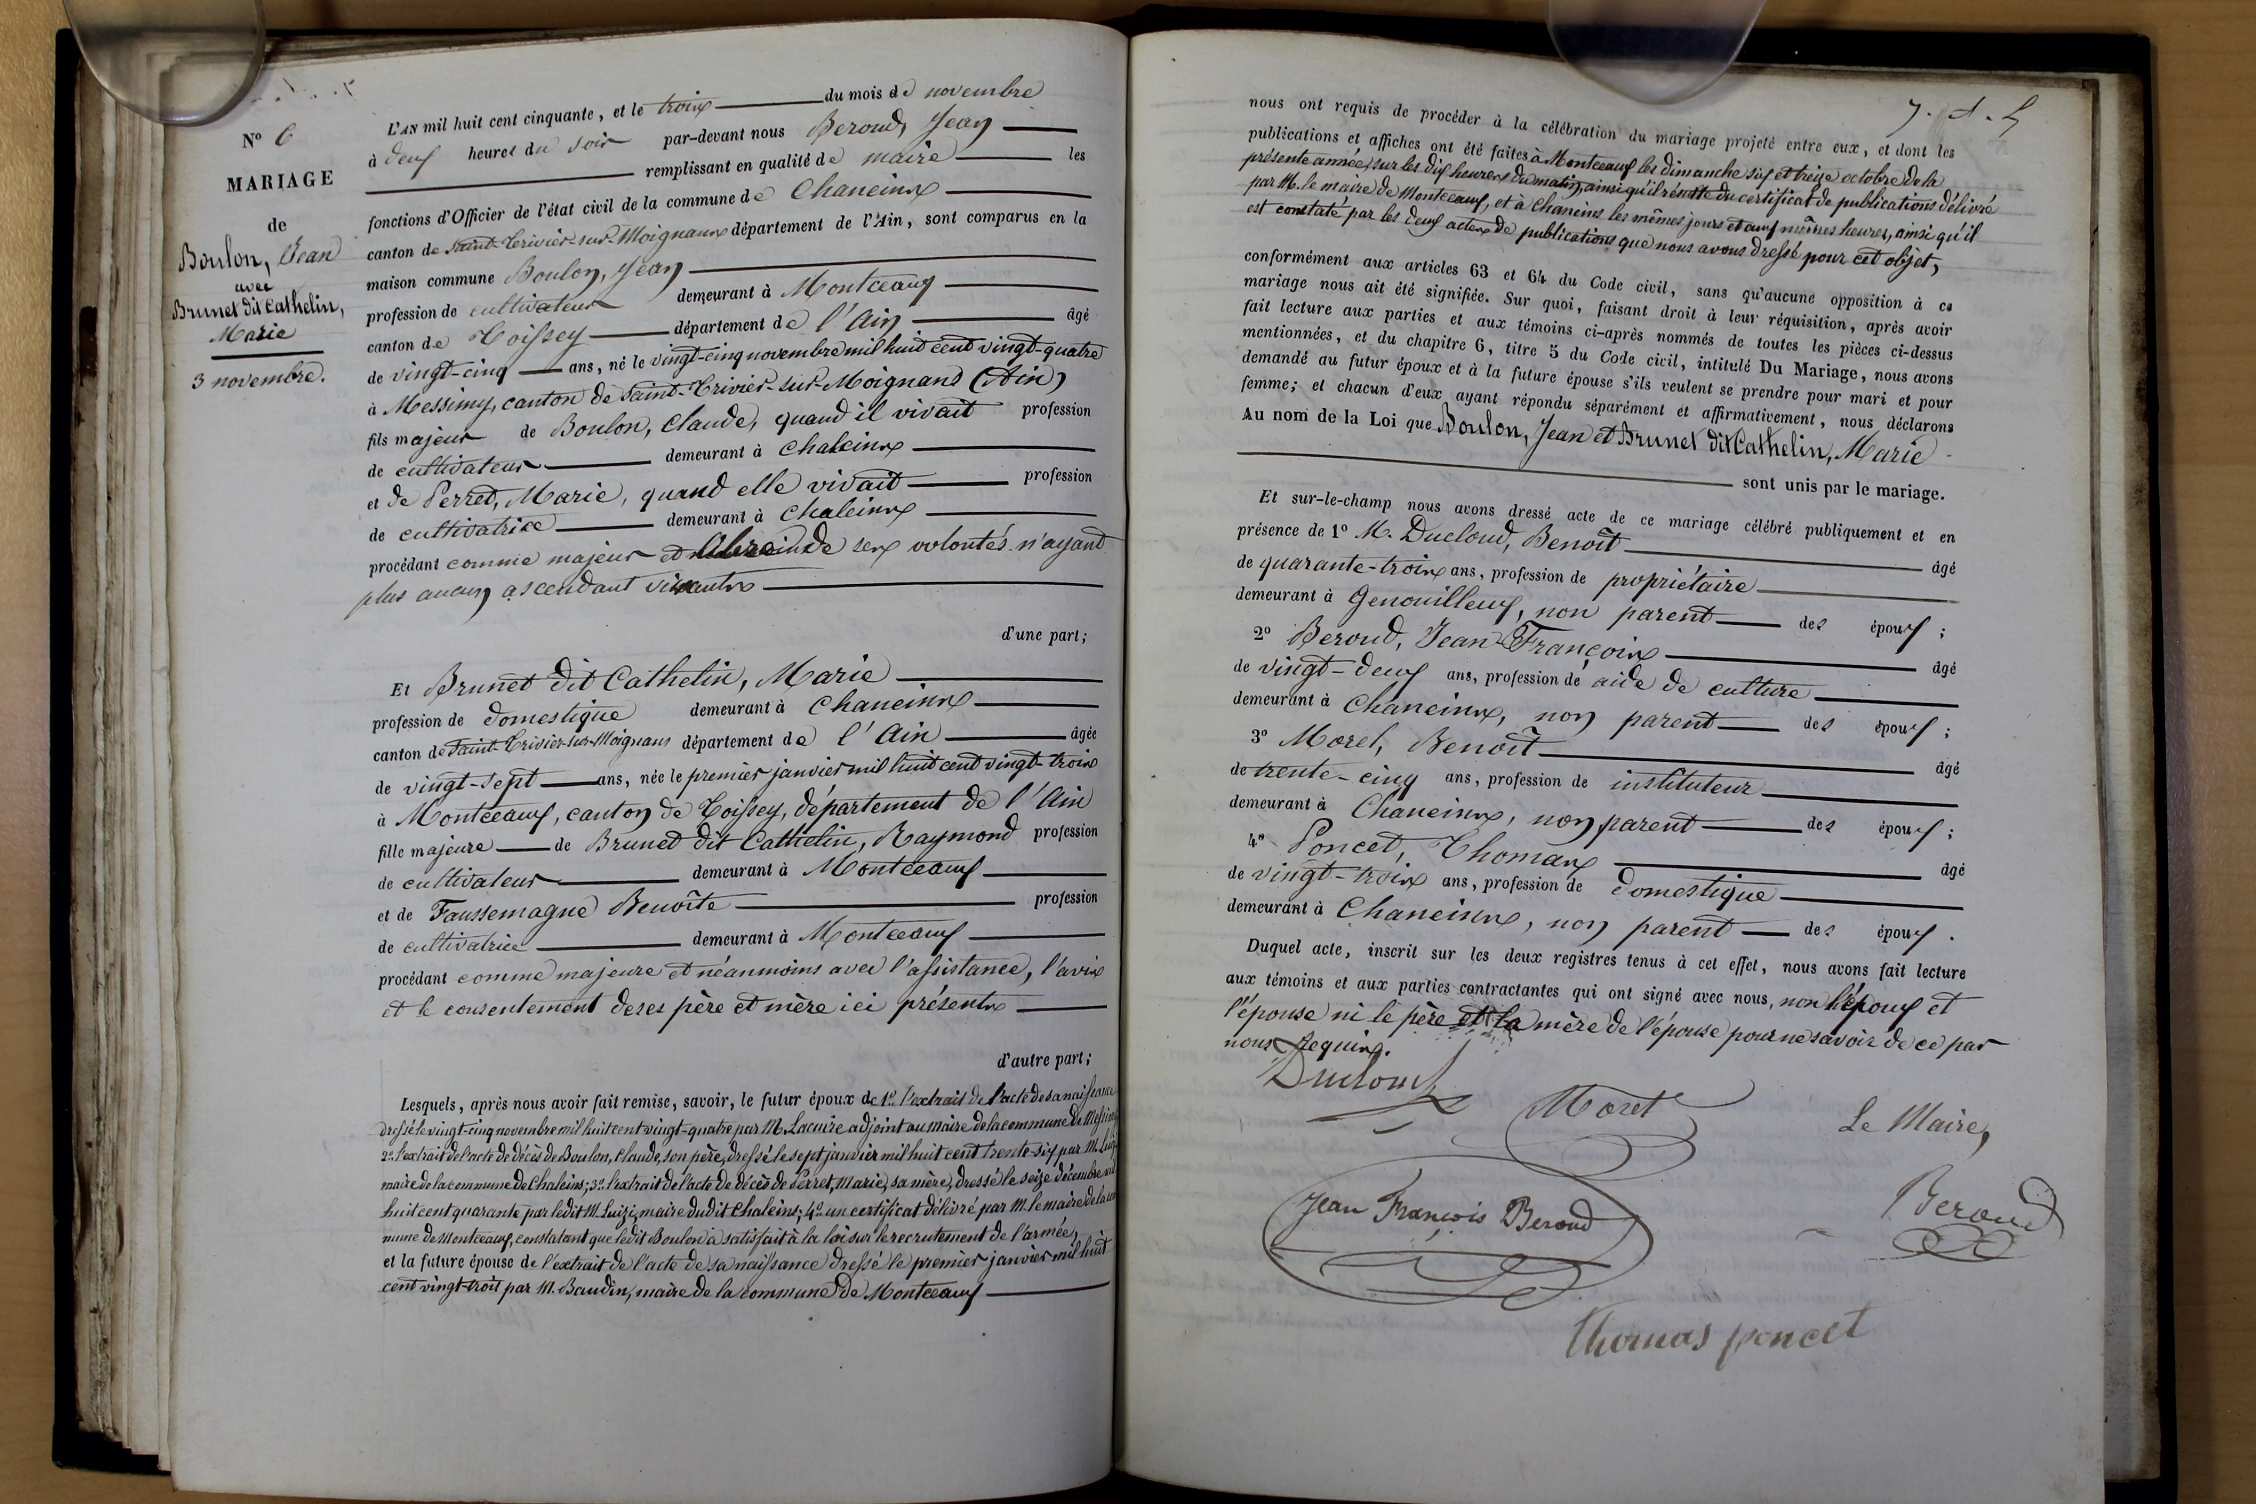 N° 6
MARIAGE
de
Boulon, Jean
avec
Brunet dit Cathelin,
Marie
3 novembre.
L'AN mil huit cent cinquante, et le trois du mois de novembre
à deux heures du soir par-devant nous Beroud, Jean
remplissant en qualité de maire les
fonctions d'Officier de l'état civil de la commune de Chaneins
canton de Saint-Trivier-sur-Moignans département de l'Ain, sont comparus en la
maison commune Boulon, Jean
profession de cultivateur demeurant à Montceaux
canton de Thoissey département de l'Ain âgé
de vingt-cinq ans, né le vingt-cinq novembre mil huit cent vingt-quatre
à Messimy, canton de Saint-Trivier-sur-Moignans (Ain)
fils majeur de Boulon, Claude, quand il vivait profession
de cultivateur demeurant à Chaleins
et de Perret, Marie, quand elle vivait profession
de cultivatrice demeurant à Chaleins
procédant comme majeur et de ses volontés n'ayant
plus aucun ascendant vivants
d'une part;
Et Brunet dit Cathelin, Marie
profession de domestique demeurant à Chaneins
canton de Saint-Trivier-sur-Moignans département de l'Ain âgée
de vingt-sept ans, née le premier janvier mil huit cent vingt-trois
à Montceaux, canton de Thoissey, département de l'Ain
fille majeure de Brunet dit Cathelin, Raymond profession
de cultivateur demeurant à Montceaux
et de Faussemagne Benoîte profession
de cultivatrice demeurant à Montceaux
procédant comme majeure et néanmoins avec l'assistance, l'avis
et le consentement de ses père et mère ici présents
d'autre part;
Lesquels, après nous avoir fait remise, savoir, le futur époux de 1° l'extrait de l'acte de sa naissance
dressé le vingt-cinq novembre mil huit cent vingt-quatre par M. Lacuire adjoint au maire de la commune de Messimy
2° l'extrait de l'acte de décès de Boulon, Claude, son père, dressé le sept janvier mil huit cent trente-six par M. Luizi
maire de la commune de Chaleins; 3° l'extrait de l'acte de décès de Perret, Marie, sa mère, dressé le seize décembre mil
huit cent quarante par ledit M. Luizi, maire dudit Chaleins; 4° un certificat délivré par M. le maire de la com
mune de Montceaux, constatant que ledit Boulon a satisfait à la loi sur le recrutement de l'armée,
et la future épouse de l'extrait de l'acte de sa naissance dressé le premier janvier mil huit
cent vingt-trois par M. Baudin, maire de la commune de Montceaux
nous ont requis de procéder à la célébration du mariage projeté entre eux, et dont les
publications et affiches ont été faites à Montceaux les dimanche six et treize octobre de la
présente année, sur les dix heures du matin, ainsi qu'il résulte du certificat de publications délivré
par M. le maire de Montceaux, et à Chaneins les mêmes jours et aux mêmes heures, ainsi qu'il
est constaté par les deux actes de publications que nous avons dressé pour cet objet,
conformément aux articles 63 et 64 du Code civil, sans qu'aucune opposition à ce
mariage nous ait été signifiée. Sur quoi, faisant droit à leur réquisition, après avoir
fait lecture aux parties et aux témoins ci-après nommés de toutes les pièces ci-dessus
mentionnées, et du chapitre 6, titre 5 du Code civil, intitulé Du Mariage, nous avons
demandé au futur époux et à la future épouse s'ils veulent se prendre pour mari et pour
femme; et chacun d'eux ayant répondu séparément et affirmativement, nous déclarons
Au nom de la Loi que Boulon, Jean et Brunet dit Cathelin, Marie
sont unis par le mariage.
Et sur-le-champ nous avons dressé acte de ce mariage célébré publiquement et en
présence de 1° M. Ducloud, Benoît âgé
de quarante-trois ans, profession de propriétaire
demeurant à Genouilleux, non parent des époux;
2° Beroud, Jean-François âgé
de vingt-deux ans, profession de aide de culture
demeurant à Chaneins, non parent des époux;
3° Morel, Benoît âgé
de trente-cinq ans, profession de instituteur
demeurant à Chaneins, non parent des époux;
4° Poncet, Thomas âgé
de vingt-trois ans, profession de domestique
demeurant à Chaneins, non parent des époux.
Duquel acte, inscrit sur les deux registres tenus à cet effet, nous avons fait lecture
aux témoins et aux parties contractantes qui ont signé avec nous, non l'époux et
l'épouse ni le père et la mère de l'épouse pour ne savoir de ce par
nous requis.
Ducloud
Morel
Le Maire,
Jean François Beroud
Beroud
Thomas poncet